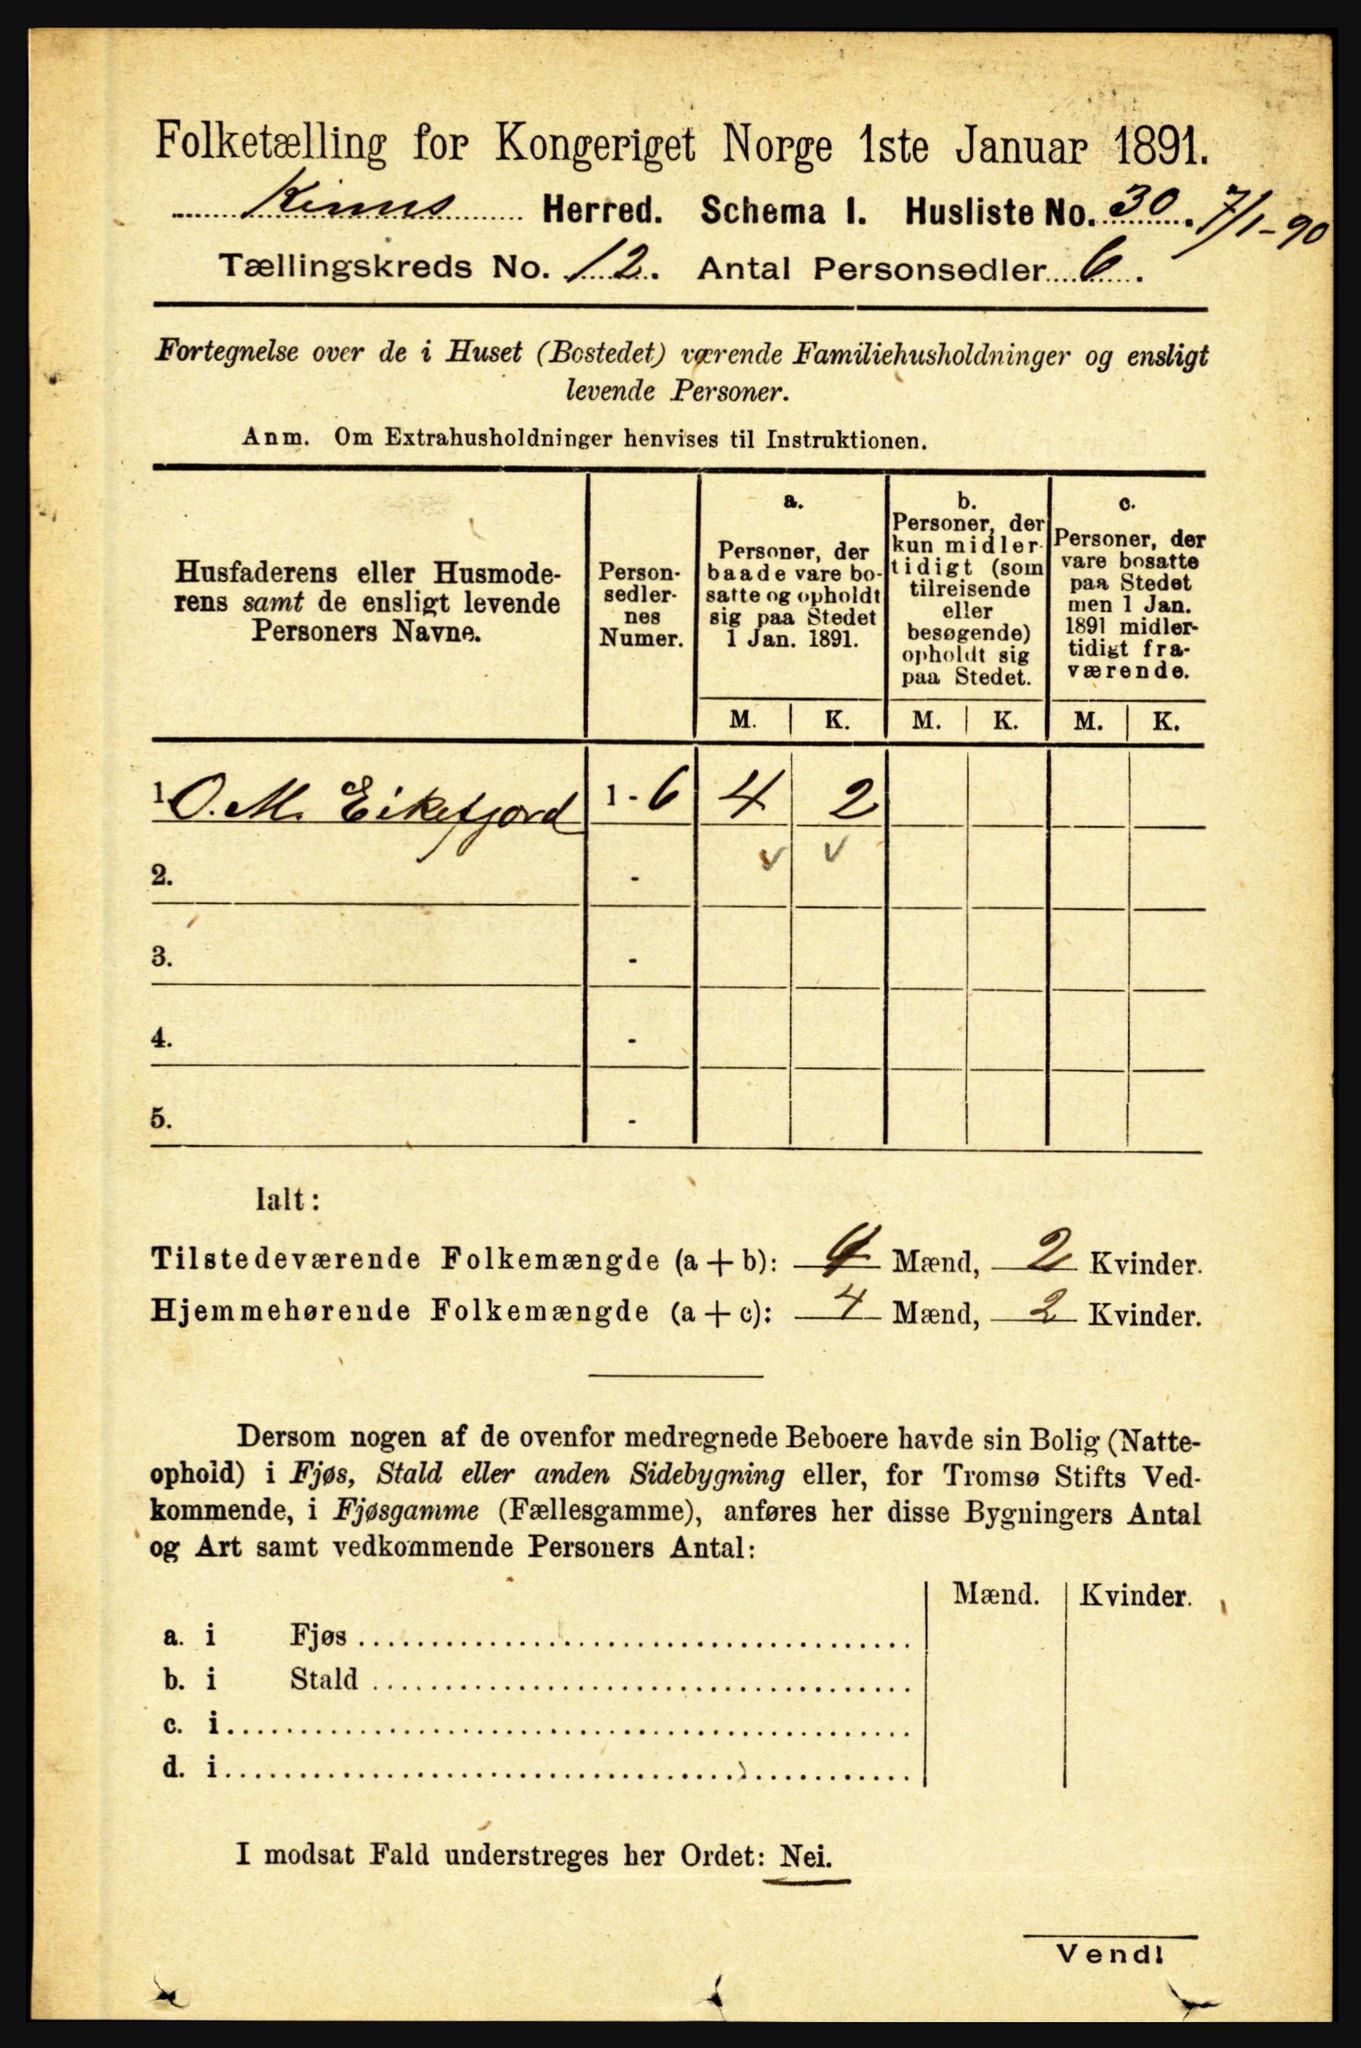 Folketælling for Kongeriget Norge 1ste Januar 1891.
Kinns Herred. Schema I. Husliste No. 30. 7/1-90
Tællingskreds No. 12. Antal Personsedler 6.
Fortegnelse over de i Huset (Bostedet) værende Familiehusholdninger og ensligt
levende Personer.
Anm. Om Extrahusholdninger henvises til Instruktionen.
Husfaderens eller Husmode-
rens samt de ensligt levende
Personers Navne.
Person-
sedler-
nes
Numer.
a.
Personer, der
baade vare bo-
satte og opholdt
sig paa Stedet
1 Jan. 1891.
b.
Personer, der
kun midler-
tidigt (som
tilreisende
eller
besøgende)
opholdt sig
paa Stedet.
c.
Personer, der
vare bosatte
paa Stedet
men 1 Jan.
1891 midler-
tidigt fra-
værende.
M. K. M. K. M. K.
1. O. M. Eikefjord 1 - 6 4 2
v v
2. -
3. -
4. -
5. -
Ialt:
Tilstedeværende Folkemængde (a + b): 4 Mænd, 2 Kvinder.
Hjemmehørende Folkemængde (a + c): 4 Mænd, 2 Kvinder.
Dersom nogen af de ovenfor medregnede Beboere havde sin Bolig (Natte-
ophold) i Fjøs, Stald eller anden Sidebygning eller, for Tromsø Stifts Ved-
kommende, i Fjøsgamme (Fællesgamme), anføres her disse Bygningers Antal
og Art samt vedkommende Personers Antal:
Mænd. Kvinder.
a. i Fjøs
b. i Stald
c. i
d. i
I modsat Fald understreges her Ordet: Nei.
Vend!